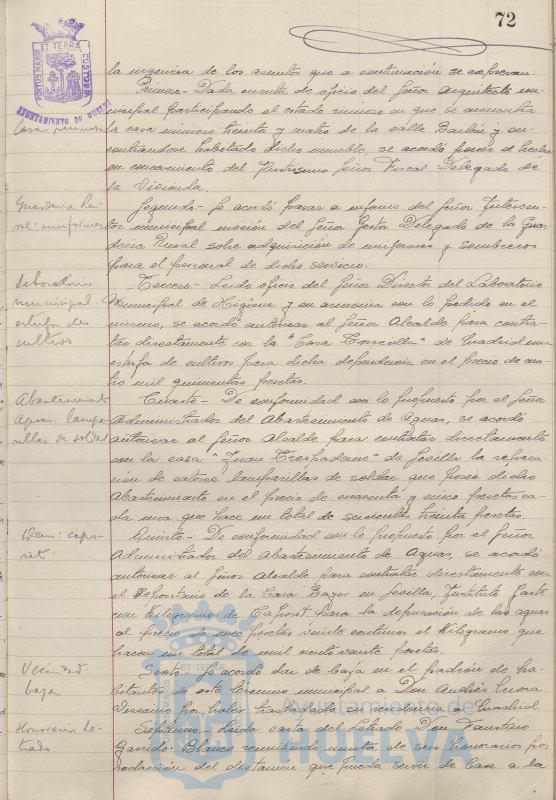 72
PORTUS MARIS ET TERRAE CUSTODIA
AYUNTAMIENTO DE HUELVA
la urgencia de los asuntos que a continuación se expresan.
Primero.- Dada cuenta de oficio del Señor Arquitecto mu-
nicipal participando el estado ruinoso en que se encuentra
Casa ruinosa
la casa número treinta y cuatro de la calle Bailén y en-
contrándose habitado dicho inmueble, se acordó poner el hecho
en conocimiento del Señor Fiscal Delegado de
la Vivienda.
Guardería Ru-
ral: uniformes
Segundo.- Se acordó pasar a informe del Señor Interven-
tor municipal moción del Señor Gestor Delegado de la Guar-
dería Rural sobre adquisición de uniformes y sombreros
para el personal de dicho servicio.
Laboratorio
municipal
estufa de
cultivos
Tercero.- Leído oficio del Señor Director del Laboratorio
Municipal de Higiene y en armonía con lo pedido en el
mismo, se acordó autorizar al Señor Alcalde para contra-
tar directamente con la "Casa Torrecilla" de Madrid una
estufa de cultivos para dicha dependencia en el precio de
mil quinientas pesetas.
Abastecimiento
Aguas: lampa-
rillas de soldar
Cuarto.- De conformidad con lo propuesto por el Señor
Administrador del Abastecimiento de Aguas, se acordó
autorizar al Señor Alcalde para contratar directamente
con la casa "Juan" de Sevilla la repara-
ción de catorce lamparillas de soldar que posee dicho
Abastecimiento en el precio de cuarenta y cinco pesetas ca-
da una que hace un total de seiscientas treinta pesetas.
Idem:
Quinto.- De conformidad con lo propuesto por el Señor
Administrador del Abastecimiento de Aguas, se acordó
autorizar al Señor Alcalde para contratar directamente con
el Depositario de la Casa Bayer en Sevilla,
Kilogramos de para la depuración de las aguas
al precio de once pesetas veinte céntimos el Kilogramo que
hacen un total de mil ciento veinte pesetas.
Vecindad
baja
Sexto.- Se acordó dar de baja en el padrón de ha-
bitantes de este término municipal a Don Andrés
por haber trasladado su residencia a Madrid
Honorarios Le-
trado.
Séptimo.- Leída carta del Letrado Don Faustino
Garrido Blanco remitiendo minuta de sus honorarios por
redacción del dictamen que pueda servir de base a la
Ayuntamiento de
HUELVA